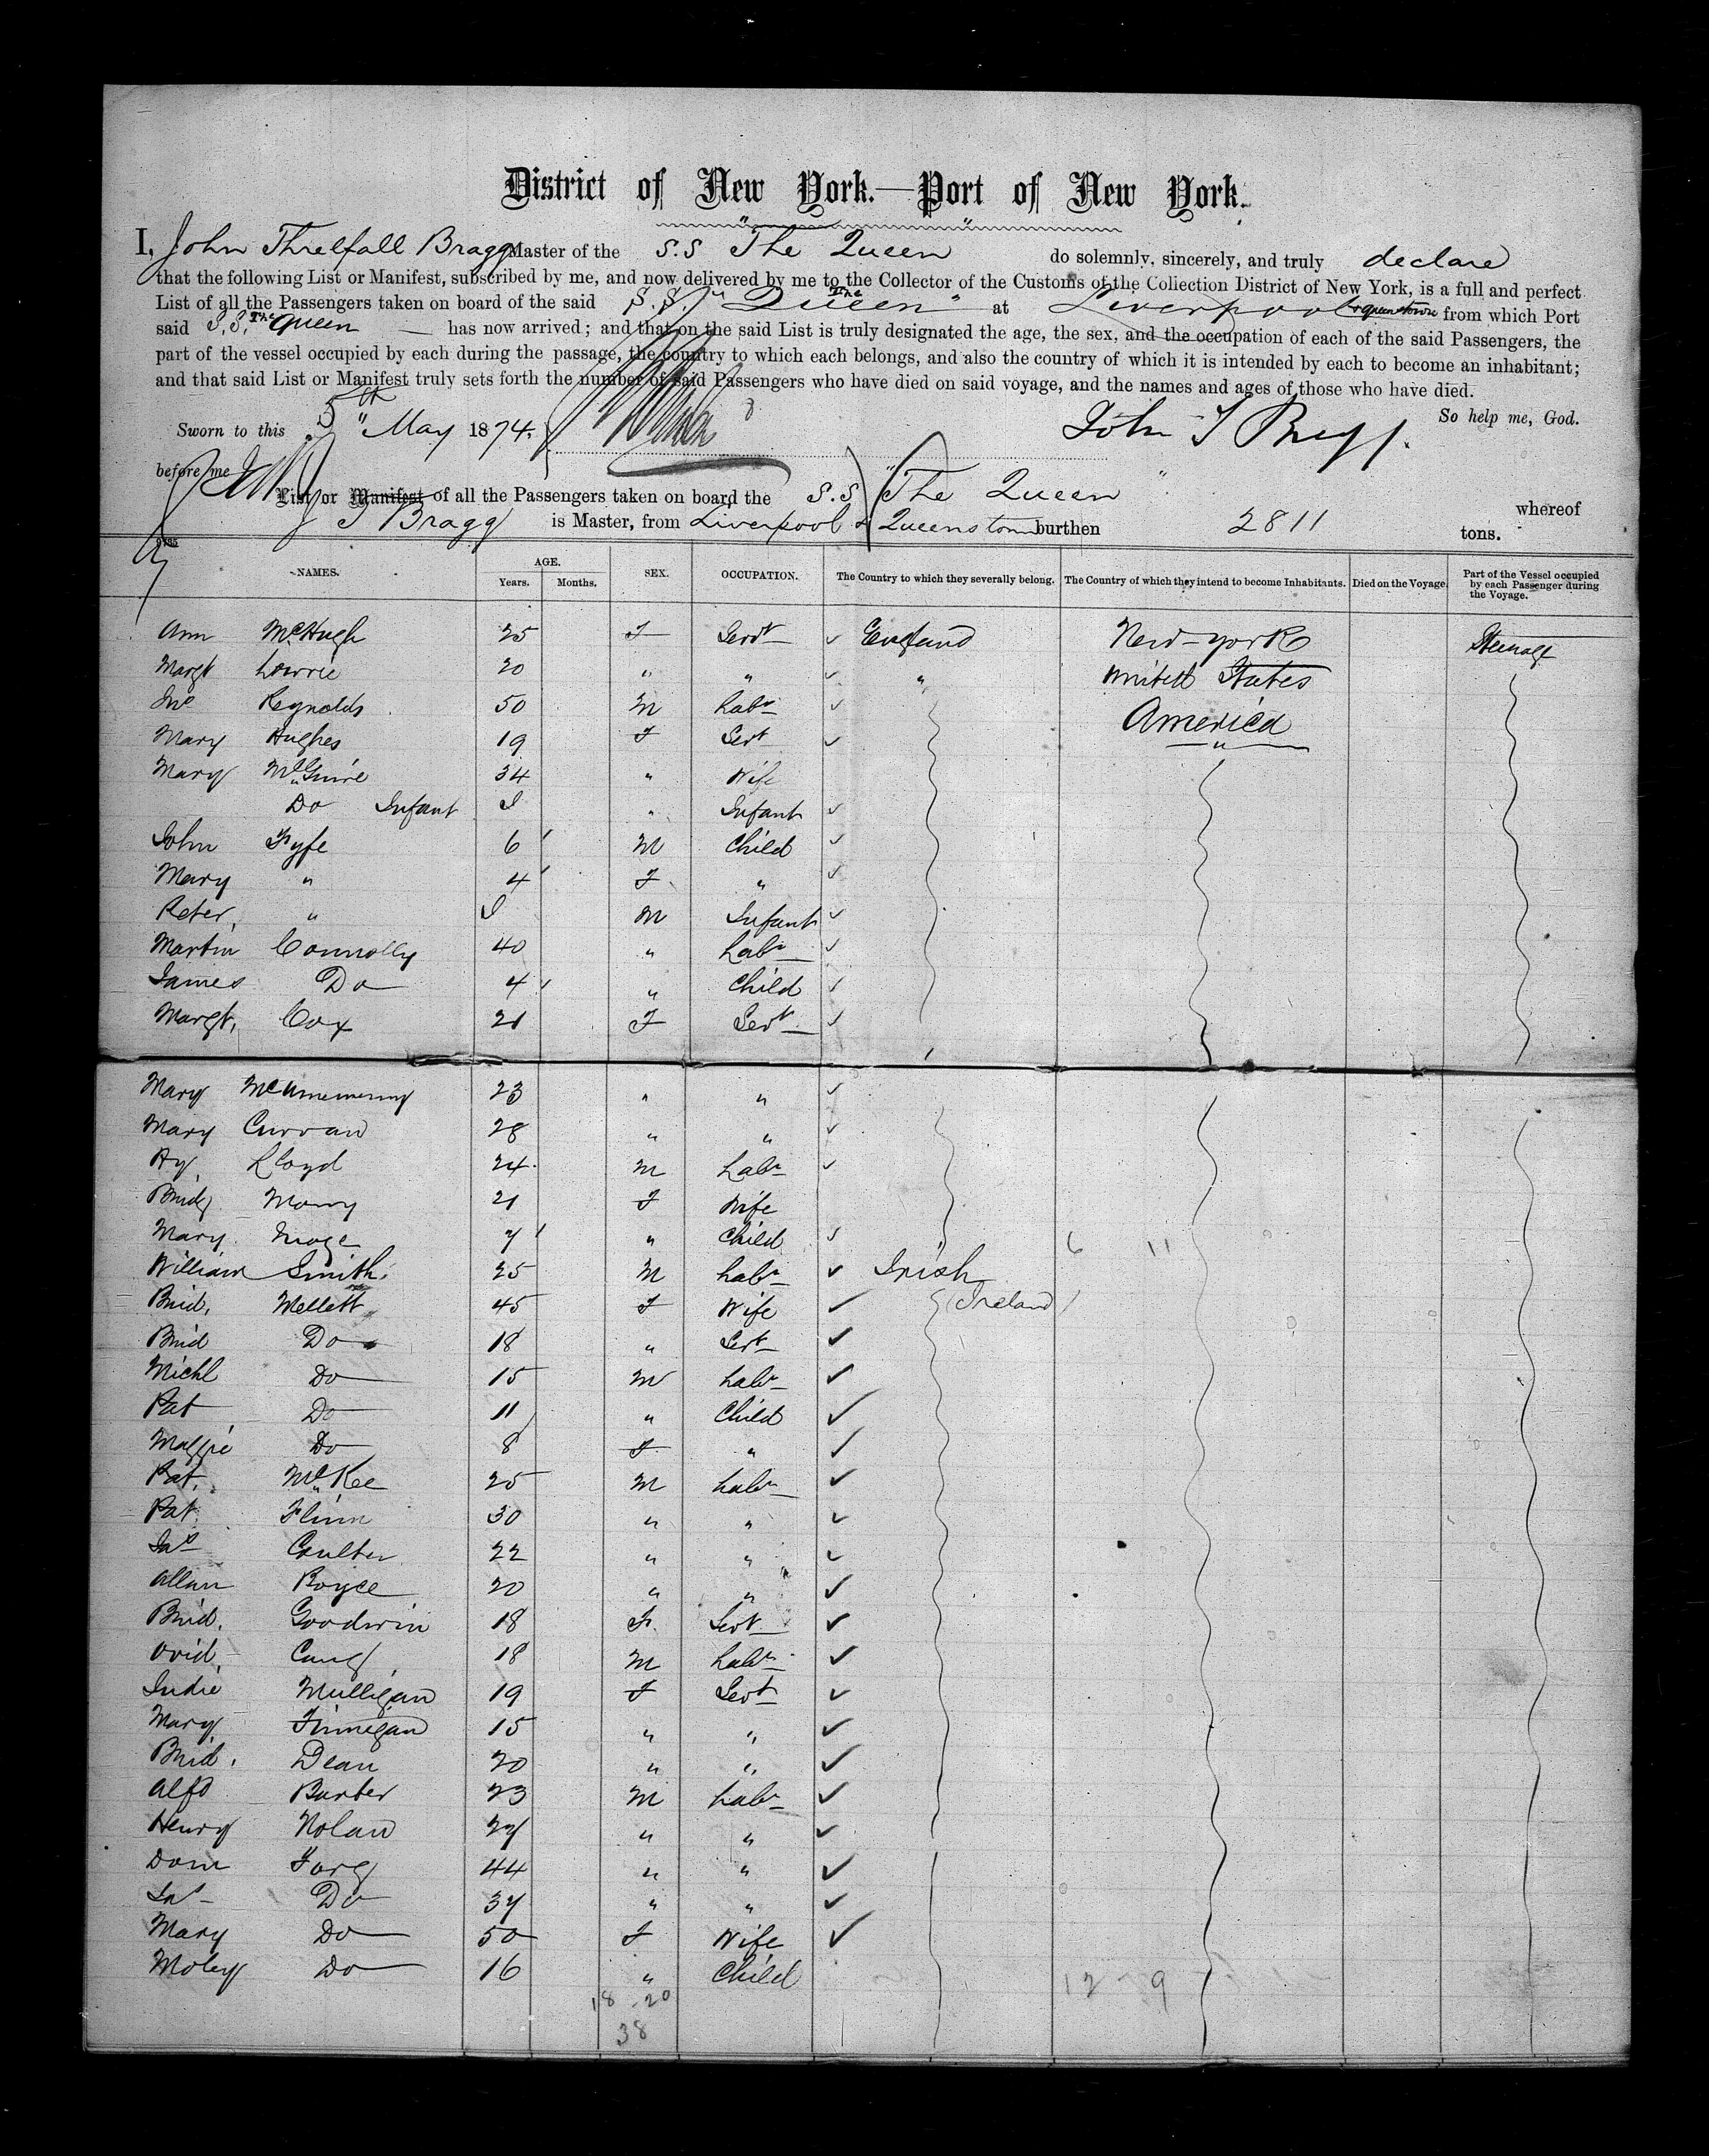 District of New York.—Port of New York.
I, John Threlfall Bragg Master of the S.S "The Queen" do solemnly, sincerely, and truly declare
that the following List or Manifest, subscribed by me, and now delivered by me to the Collector of the Customs of the Collection District of New York, is a full and perfect
List of all the Passengers taken on board of the said S.S. "The Queen" at Liverpool & Queenstown from which Port
said S.S. The Queen has now arrived; and that on the said List is truly designated the age, the sex, and the occupation of each of the said Passengers, the
part of the vessel occupied by each during the passage, the country to which each belongs, and also the country of which it is intended by each to become an inhabitant;
and that said List or Manifest truly sets forth the number of said Passengers who have died on said voyage, and the names and ages of those who have died.
So help me, God.
Sworn to this 5th May 1874. John T Bragg.
before me
List or Manifest of all the Passengers taken on board the S.S "The Queen" whereof
J T Bragg is Master, from Liverpool & Queenstown burthen 2811 tons.
NAMES. AGE. Years. Months. SEX. OCCUPATION. The Country to which they severally belong. The Country of which they intend to become Inhabitants. Died on the Voyage. Part of the Vessel occupied by each Passenger during the Voyage.
Ann McHugh 25 F Servt England New-york Steerage
Margt Lowrie 20 " " " United States
Jno Reynolds 50 M Labr America
Mary Hughes 19 F Sert "
Mary McGuire 34 " Wife
Do Infant I " Infant
John Fyfe 6 M Child
Mary " 4 F "
Peter " I M Infant
Martin Connolly 40 " Labr
James Do 4 " Child
Margt. Cox 21 F Servt
Mary 23 " "
Mary Curran 28 " "
Hy Lloyd 24 M Labr
Brid 21 F Wife
Mary 7 " Child 6 11
William Smith 25 M Labr Irish
Brid. Mellett 45 F Wife (Ireland)
Brid Do 18 " Sert
Michl Do 15 M Labr
Pat Do 11 " Child
Maggie Do 8 F "
Pat. McKee 25 M Labr
Pat. Flinn 30 " "
Jas Coulter 22 " "
Allan Royce 20 " "
Brid. Goodwin 18 F. Servt
18 M Labr
Judie Mulligan 19 F Servt
Mary Finnegan 15 " "
Brid. Dean 20 " "
Alfd Barber 23 M Labr
Henry Nolan 27 " "
Dom 44 " "
Jas Do 37 " "
Mary Do 50 F Wife
Do 16 " Child 12 - 9
18 - 20
38